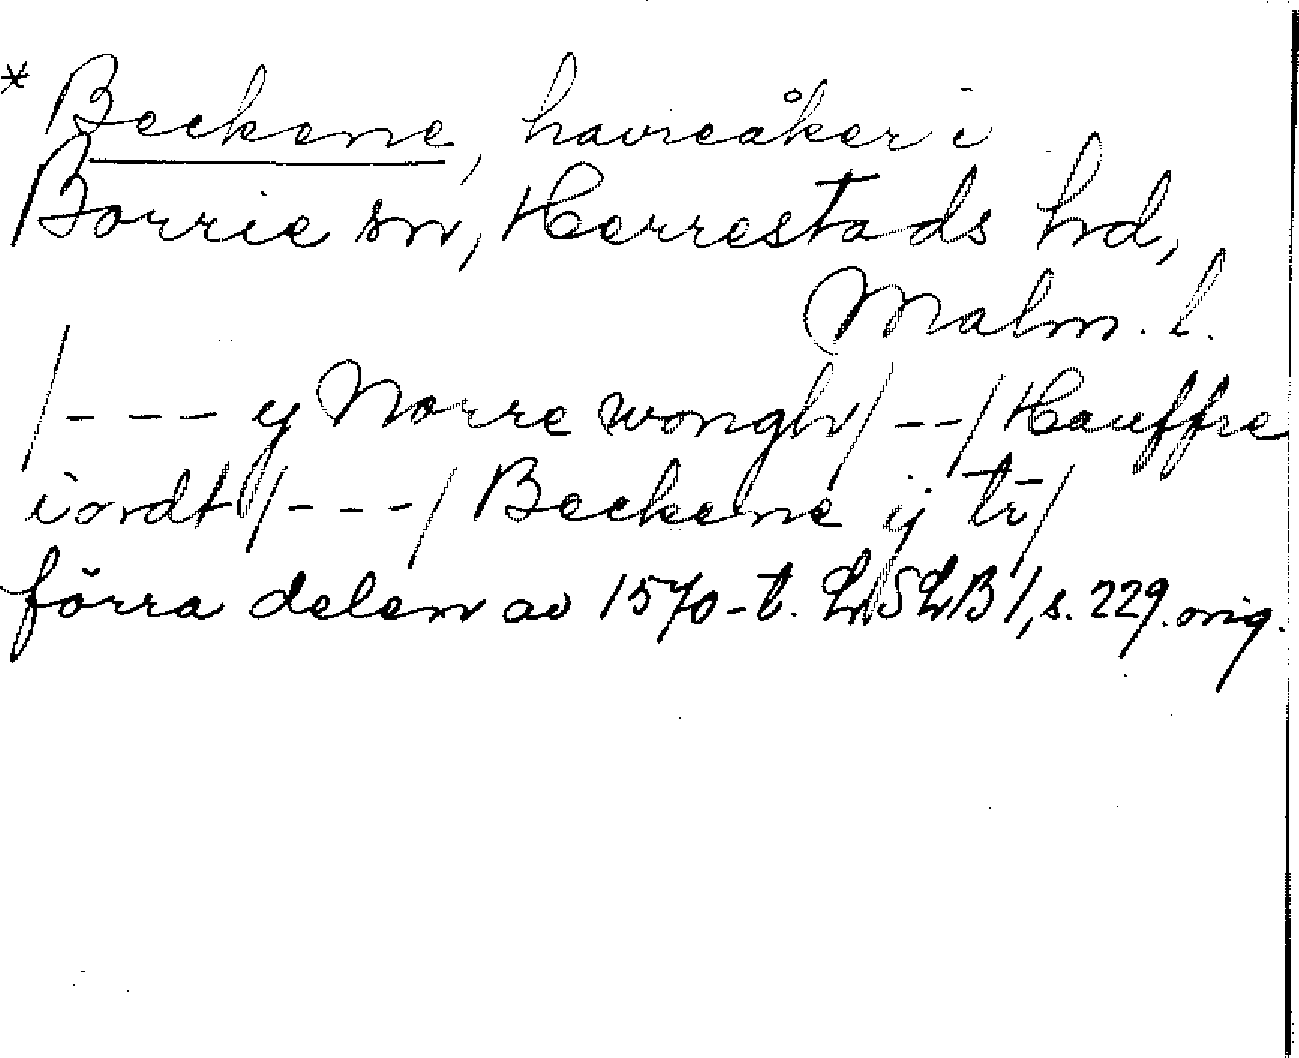 * Beckene, havreåker i
Borrie sn, Herrestads hd,
Malm. l.
/--- y Norre wongh/--/Hauffre
iordt/---/ Beckene ij tr/
förra delen av 1570-t. LrSLB1, s. 229. orig.